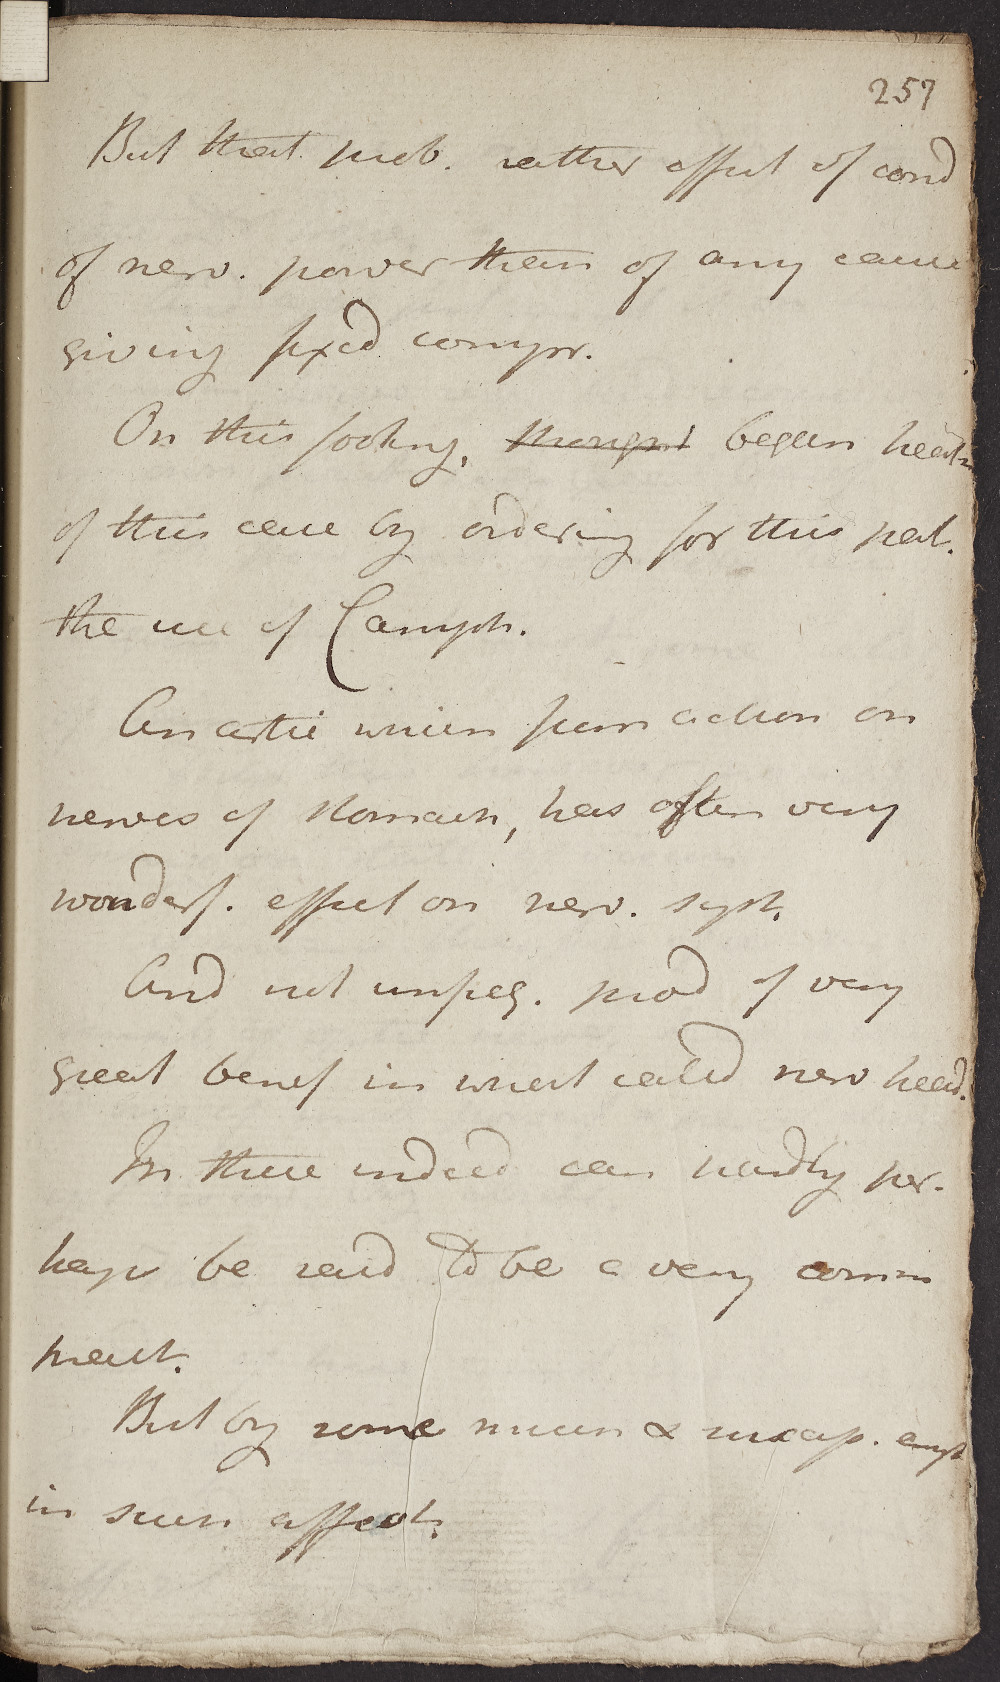 257
But that prob. rather effect of cond
of nerv. power than of any cause
giving fixed compr.
On this footing, thought began treatm
of this case by ordering for this pat.
the use of Camph.
An article which from action on
nerves of stomach, has often very
wonderf. effect on nerv. syst.
And not unfreq. prod of very
great benef in what called nerv head.
In these indeed can hardly per-
haps be said to be a very comm
pract.
But by some much & succesf. empl
in such affect.